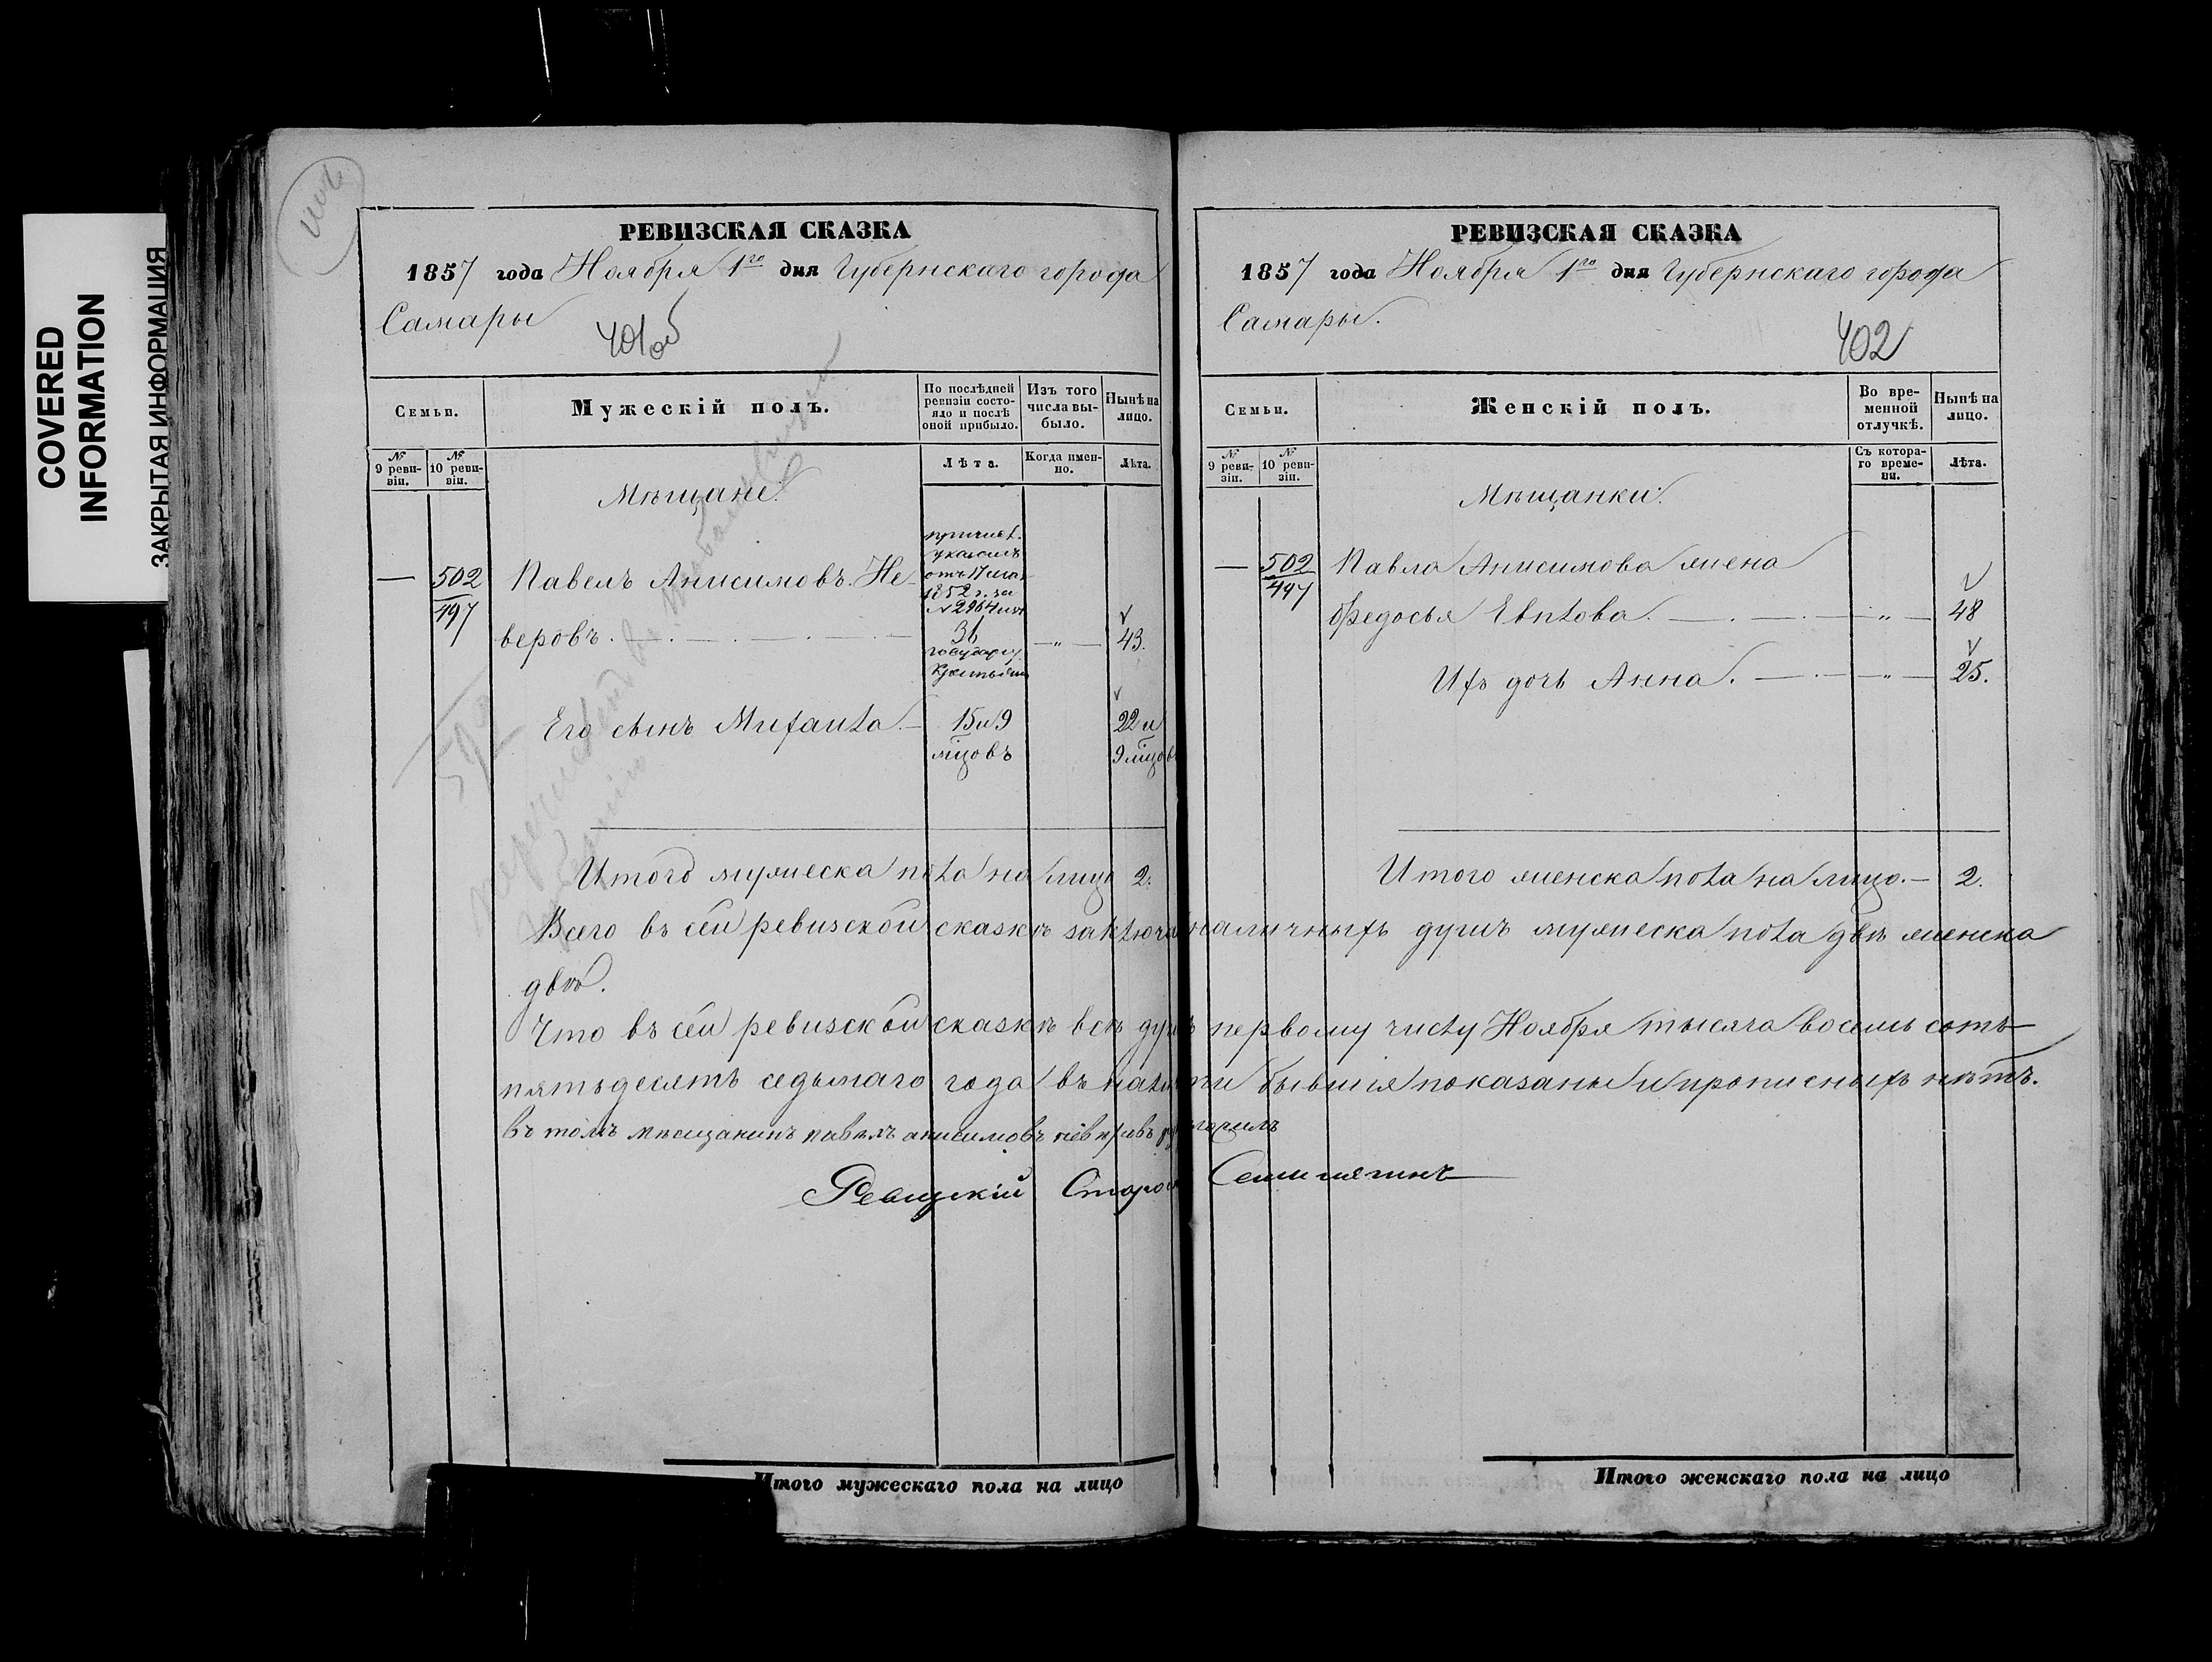 COVERED
INFORMATION
ЗАКРЫТАЯ ИНФОРМАЦИЯ
РЕВИЗСКАЯ СКАЗКА
1857 года Ноября 1го дня Губернскаго города
Самары
401об
Семьи.
Мужескій полъ.
По послѣдней ревизіи состояло и послѣ оной прибыло.
Изъ того числа выбыло.
Нынѣ на лицо.
№ 9 ревизіи.
№ 10 ревизіи.
Лѣта.
Когда именно.
Лѣта.
Мѣщане.
причисл.
указомъ
отъ 17 мая
1852 г. за
№ 2964 изъ
— 502 Павелъ Анисимовъ Не-
497
веровъ. 36 — „ — 43.
государ.
крестьянъ
592
Его сынъ Михаила. 15 и 9 22 и
мѣцовъ 9 мѣцовъ
Итого мужеска пола на лицо 2.
Всего въ сей ревизской сказкѣ заключа наличныхъ душъ мужеска пола двѣ женска
двѣ.
Что въ сей ревизской сказкѣ всѣ душ первому числу Ноября тысяча восемь сотъ
пятьдесятъ седьмаго года въ нали чи бывшія показаны и прописныхъ нѣтъ.
въ томъ мѣщанинъ павелъ анисимовъ невѣровъ
Ревизскій Старо Семиглягинъ
Итого мужескаго пола на лицо
РЕВИЗСКАЯ СКАЗКА
1857 года Ноября 1го дня Губернскаго города
Самары.
402
Семьи.
Женскій полъ.
Во временной отлучкѣ.
Нынѣ на лицо.
№ 9 ревизіи.
№ 10 ревизіи.
Съ котораго времени.
Лѣта.
Мѣщанки.
— 502 Павла Анисимова жена
497
Федосья Евплова. — „ — 48
Ихъ дочь Анна. — „ — 25.
Итого женска пола на лицо. — 2.
Итого женскаго пола на лицо